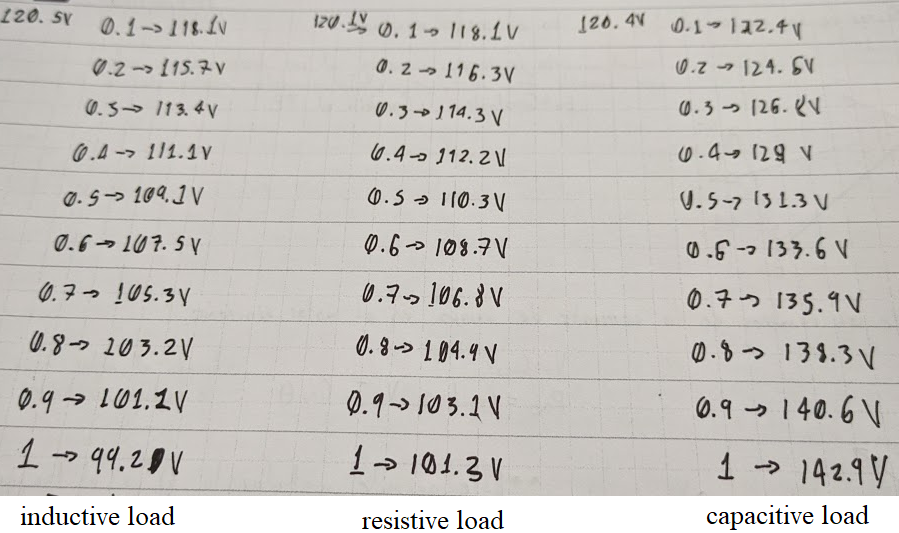 120.5V 0.1→118.1V 120.1V → 0.1→118.1V 120.4V 0.1→122.4V
0.2→115.7V 0.2→116.3V 0.2→124.6V
0.3→113.4V 0.3→114.3V 0.3→126.8V
0.4→111.1V 0.4→112.2V 0.4→129 V
0.5→109.1V 0.5→110.3V 0.5→131.3V
0.6→107.5V 0.6→108.7V 0.6→133.6V
0.7→105.3V 0.7→106.8V 0.7→135.9V
0.8→103.2V 0.8→104.9V 0.8→138.3V
0.9→101.1V 0.9→103.1V 0.9→140.6V
1→99.2V 1→101.3V 1→142.9V
inductive load resistive load capacitive load